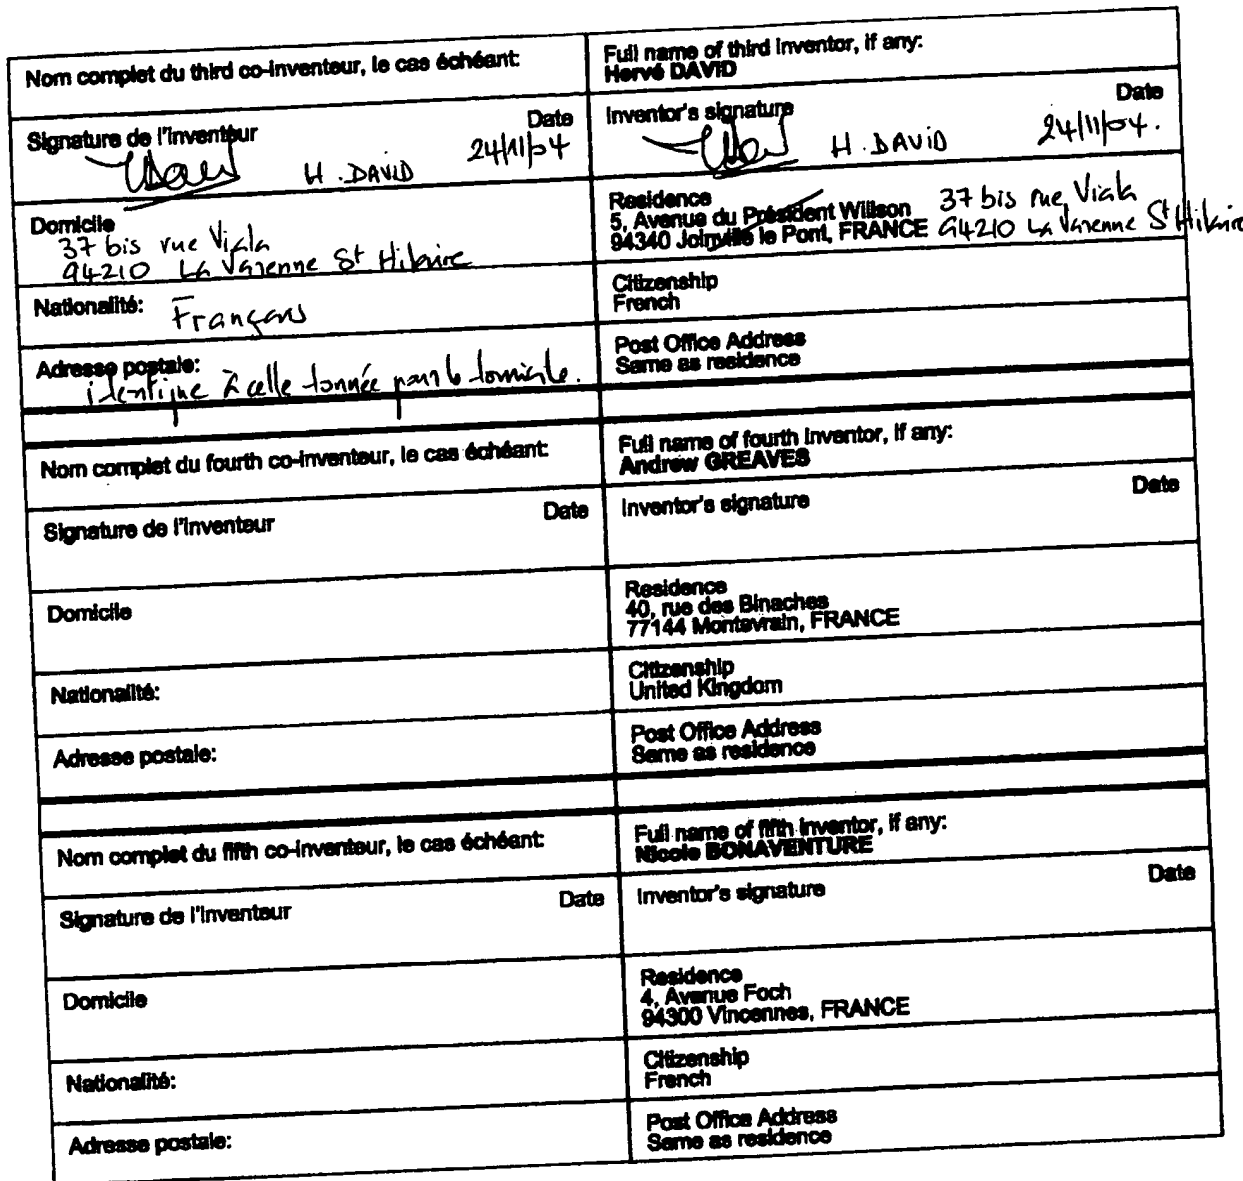 Nom complet du third co-inventeur, le cas échéant:
Full name of third inventor, if any:
Hervé DAVID
Signature de l'inventeur
Date
H. DAVID
24/11/04
Inventor's signature
Date
H. DAVID
24/11/04.
Domicile
37 bis rue Viala
94210 La Varenne St Hilaire
Residence
5, Avenue du Président Willson
94340 Joinville le Pont, FRANCE
37 bis rue Viala
94210 La Varenne St Hilaire
Nationalité:
Français
Citizenship
French
Adresse postale:
identique à celle donnée pour le domicile.
Post Office Address
Same as residence
Nom complet du fourth co-inventeur, le cas échéant:
Full name of fourth inventor, if any:
Andrew GREAVES
Signature de l'inventeur
Date
Inventor's signature
Date
Domicile
Residence
40, rue des Binaches
77144 Montevrain, FRANCE
Nationalité:
Citizenship
United Kingdom
Adresse postale:
Post Office Address
Same as residence
Nom complet du fifth co-inventeur, le cas échéant:
Full name of fifth inventor, if any:
Nicole BONAVENTURE
Signature de l'inventeur
Date
Inventor's signature
Date
Domicile
Residence
4, Avenue Foch
94300 Vincennes, FRANCE
Nationalité:
Citizenship
French
Adresse postale:
Post Office Address
Same as residence